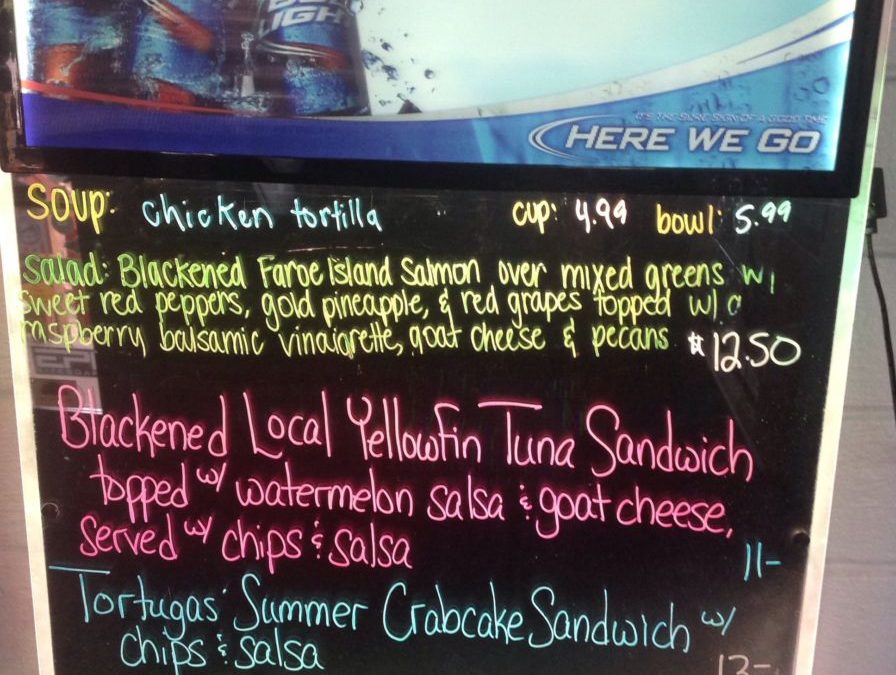 LIGHT
IT'S THE SURE SIGN OF A GOOD TIME
HERE WE GO
Soup: chicken tortilla cup: 4.99 bowl: 5.99
Salad: Blackened Faroe Island Salmon over mixed greens w/
sweet red peppers, gold pineapple, & red grapes topped w/ a
raspberry balsamic vinaigrette, goat cheese & pecans $12.50
Blackened Local Yellowfin Tuna Sandwich
topped w/ watermelon salsa & goat cheese,
served w/ chips & salsa
11-
Tortugas' Summer Crabcake Sandwich w/
chips & salsa
13-